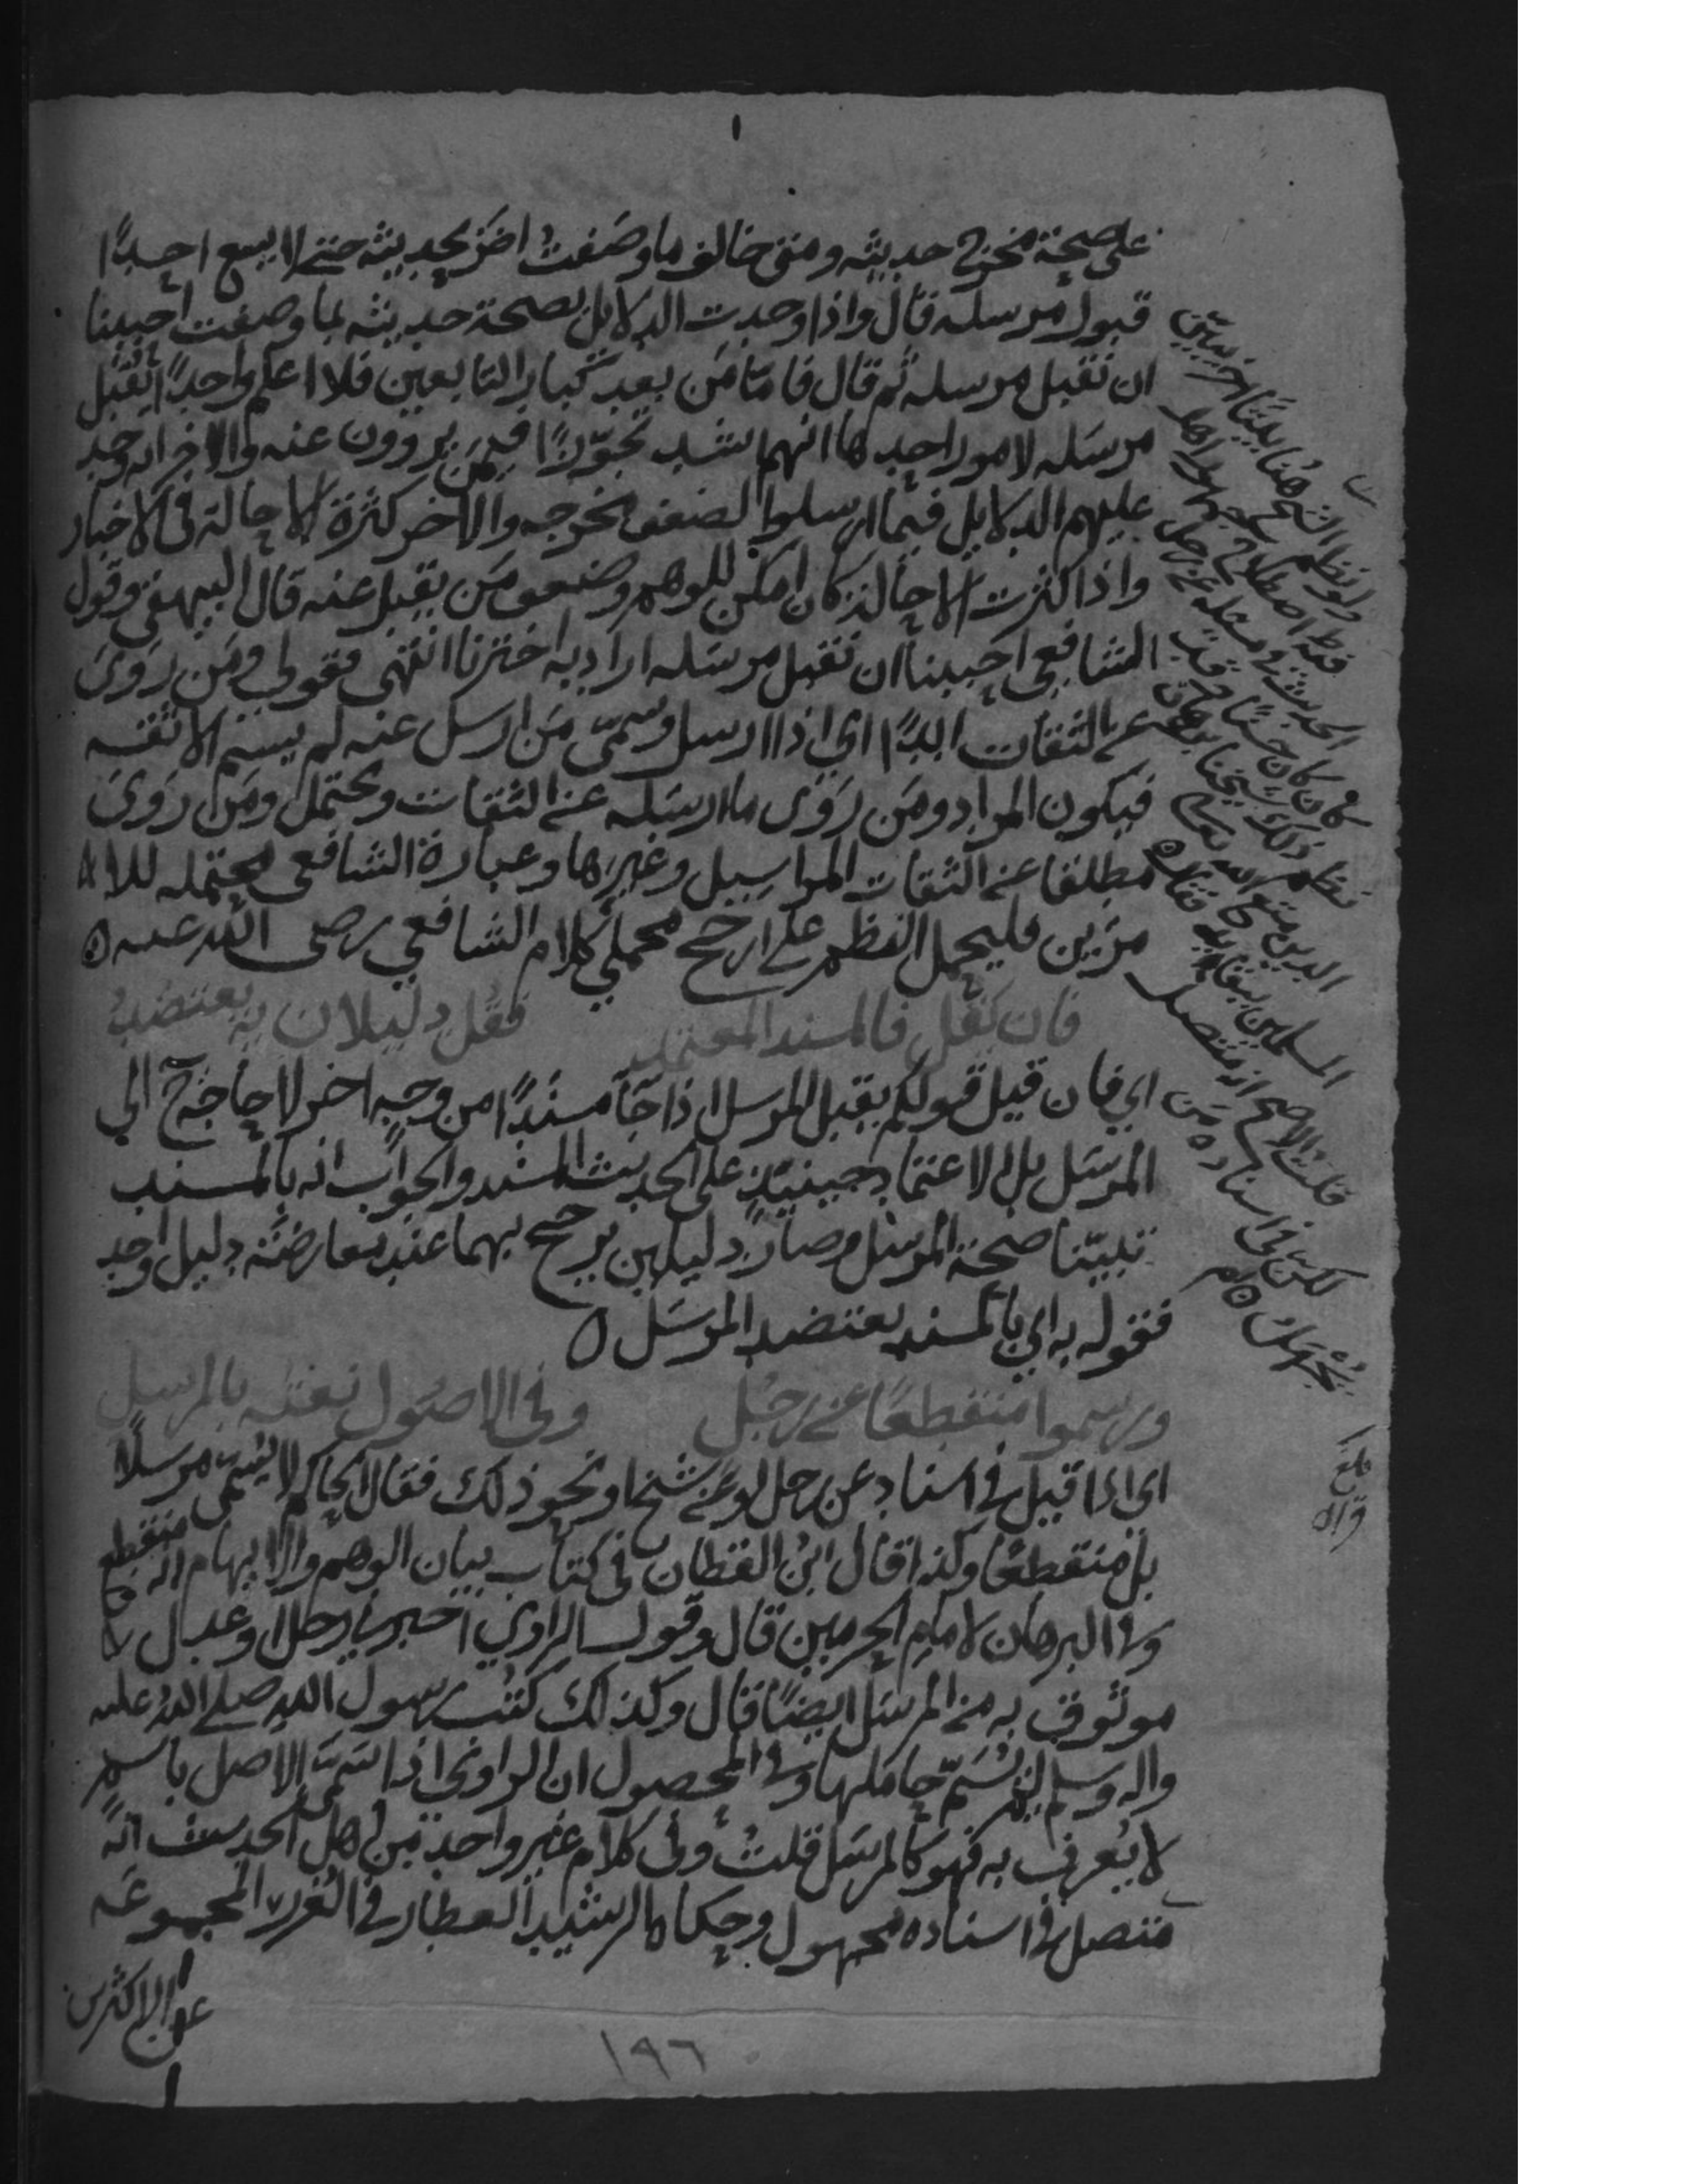 على صحة مخرج حديثه ومتى خالف ما وصفت اضر بحديثه حتى لا يسع احدًا
قبول مرسله قال واذا وجدت الدلايل بصحة حديثه بما وصفت احببنا
ان نقبل مرسله ثم قال فامّا مَن بعد كبار التابعين فلا اعلم واحدًا يُقبل
مرسَله لامور احدها انهم اشد تجوّزًا فيمن يروون عنه والاخر انه وجد
عليهم الدلايل فيما ارسلوا لضعف مخرجه والاخر كثرة الاحالة في الاخبار
واذا كثرت الاحالة كان امكن للوهم وضعف مَن يقبل عنه قال البيهقي وقول
الشافعي احببنا ان نقبل مرسَله اراد به اخترنا انتهى فقولي ومَن رَوَى
عن الثقات ابدًا اي اذا ارسل وسمّى مَن ارسل عنه لم يسم الا ثقه
فيكون المراد ومَن رَوَى ما ارسَله عن الثقات ويحتمل ومَن رَوَى
مطلقا عن الثقات المراسيل وغيرها وعبارة الشافعي محتمله للا
مرَين فليحمل النظم على ارجح محملي كلام الشافعي رضى الله عنه ه
فان يُقَل فالمسند المعتمد فقُل دليلان به يعتضدُ
اي فان قيل قولكم يقبل المرسل اذا جآ مسندًا من وجه اخر لا حاجة ح الى
المرسَل بل الاعتماد حينيذ على الحديث المسند والجواب انه بالمسند
تبيّنا صحة المرسَل وصارَا دليلين يرجح بهما عند معارضَة دليل واحد
فقوله به اي بالمسند يعتضد المرسَل ه
ورسموا منقطعًا عن رجُل وفي الاصُول نعتُه بالمرسل
اي اذا قيل في اسناد عن رجل او عن شيخ او نحو ذلك فقال الحاكم لا يُسمّى مرسلًا
بل منقطعًا وكذا قال ابن القطان في كتاب بيان الوهم والايهام انه منقطع
وفي البرهان لامام الحرمين قال وقول الراوي اخبرني رجل او عدل
موثوق به من المرسَل ايضًا قال وكذلك كتُب رسول الله صلى الله عليه
واله وسلم التي لم يُسَمّ حاملها وفي المحصول ان الراوي اذا سمّى الاصل باسم
لا يُعرف به فهو كالمرسَل قلتُ وفي كلام غير واحد من اهل الحديث انهُ
متصل في اسناده مجهول وحكاه الرشيد العطار في الغرر المجموعَه
عن الاكثرين
قلت الاصح انه متصل
لكن في اسناده مَن
يُجهَلُ ه
بلغ
قراه
١٩٦